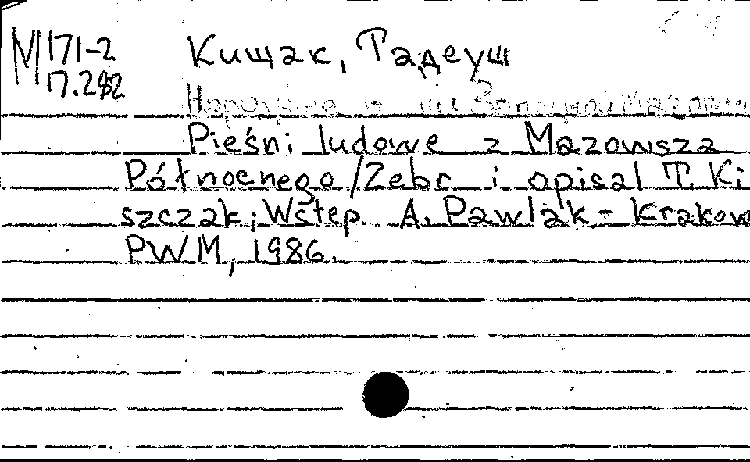 М 171-2 Кищак, Тадеуш
17.282
Pieśni ludowe z Mazowsza
Północnego / Zebr. i opisał T. Ki
szczak; Wstęp. A. Pawlak - Krakow
PWM, 1986.